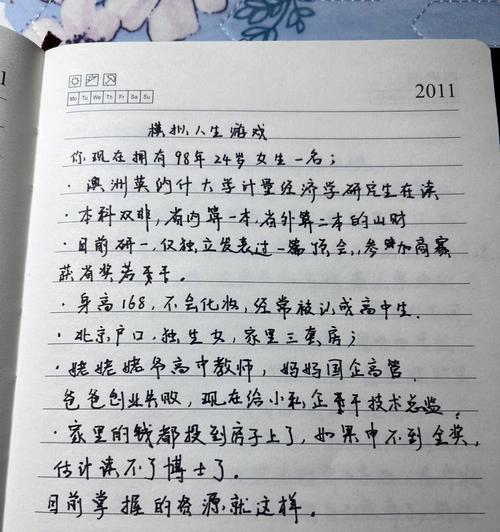 2011
Mo Tu We Th Fr Sa Su
模拟人生游戏
你现在拥有98年24岁女生一名；
·澳洲英的什大学计量经济学研究生在读
·本科双非，省内算一本，省外算二本的山财
·目前研一，仅独立发表过一篇顶会，参加商赛
获省奖若干。
·身高168，不会化妆，经常被认成高中生.
·北京户口，独生女，家里三套房；
·姥姥姥爷高中教师，妈妈国企高管，
爸爸创业失败，现在给小私企干技术总监.
·家里的钱都投到房子上了，如果申不到全奖，
估计读不了博士了。
目前掌握的资源就这样。